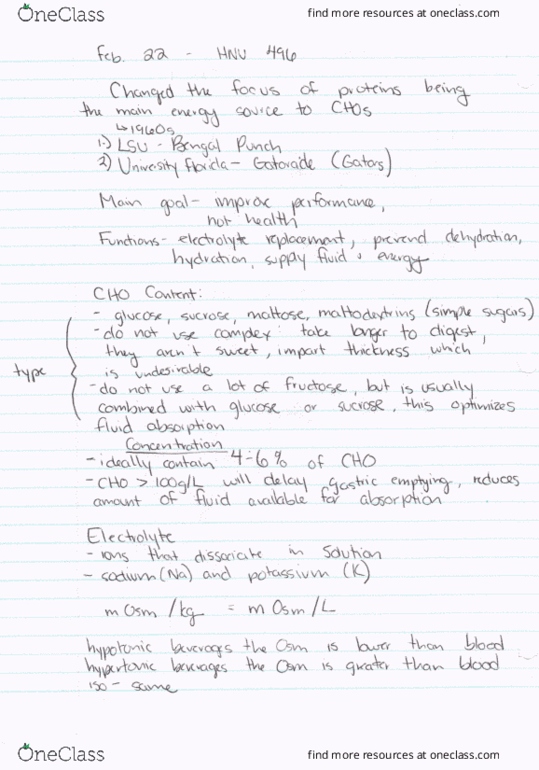 OneClass
find more resources at oneclass.com
Feb. 22 - HNU 496
Changed the focus of proteins being
the main energy source to CHOs
↳1960s
1.) LSU - Bengal Punch
2) University Florida - Gatorade (Gators)
Main goal - improve performance,
not health
Functions - electrolyte replacement, prevend dehydration,
hydration, supply fluid & energy
CHO Content:
- glucose, sucrose, maltose, maltodextrins (simple sugars)
- do not use complex: take longer to digest,
they aren't sweet, impart thickness which
type
is undesirable
- do not use a lot of fructose, but is usually
combined with glucose or sucrose, this optimizes
fluid absorption
Concentration
- ideally contain 4-6% of CHO
- CHO > 100g/L will delay gastric emptying, reduces
amount of fluid available for absorption
Electrolyte
- ions that dissociate in solution
- sodium (Na) and potassium (K)
mOsm/kg = mOsm/L
hypotonic beverages the Osm is lower than blood
hypertonic beverages the Osm is greater than blood
iso - same
OneClass
find more resources at oneclass.com